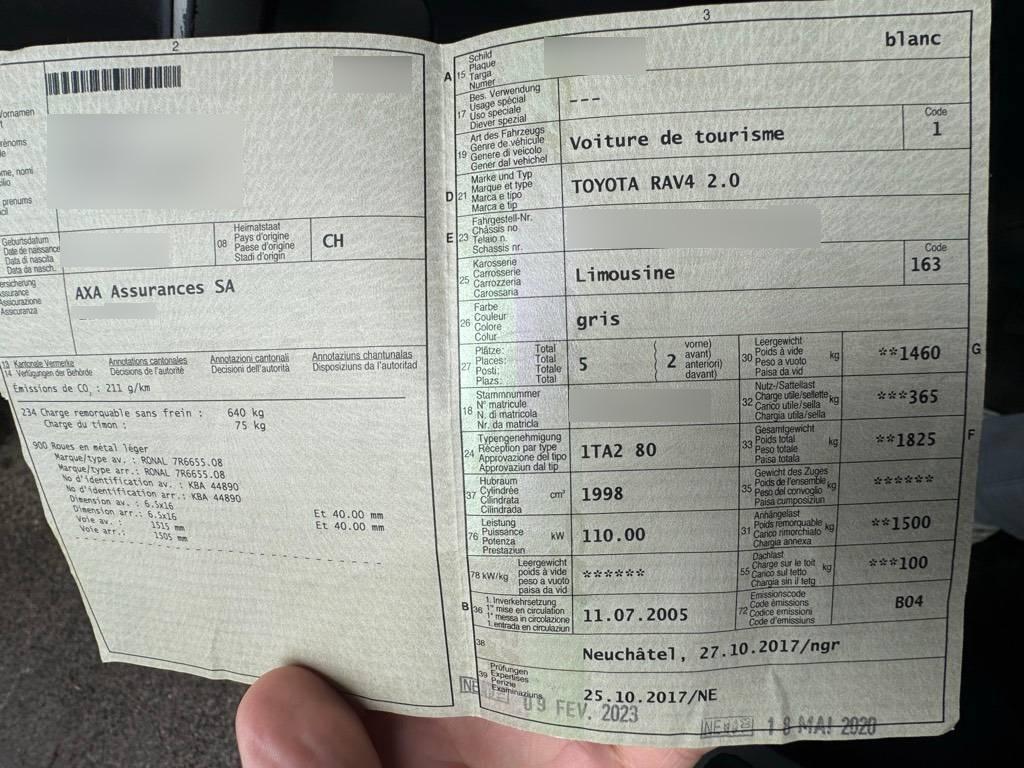 2
ornamen
rénoms
me, nomi
prenums
Geburtsdatum
Date de naissance
Data di nascita
Data da nasch.
08
Heimatstaat
Pays d'origine
Paese d'origine
Stadi d'origin
CH
ersicherung
ssurance
Assicurazione
Assicuranza
AXA Assurances SA
13 Kantonale Vermerke Annotations cantonales Annotazioni cantonali Annotaziuns chantunalas
14 Verfügungen der Behörde Décisions de l'autorité Decisioni dell'autorità Disposiziuns da l'autoritad
Emissions de CO2 : 211 g/km
234 Charge remorquable sans frein : 640 kg
Charge du timon : 75 kg
900 Roues en métal léger
Marque/type av. : RONAL 7R6655.08
Marque/type arr.: RONAL 7R6655.08
No d'identification av. : KBA 44890
No d'identification arr.: KBA 44890
Dimension av. : 6.5x16 Et 40.00 mm
Dimension arr.: 6.5x16 Et 40.00 mm
Voie av. : 1515 mm
Voie arr.: 1505 mm
3
A 15
Schild
Plaque
Targa
Numer
blanc
17
Bes. Verwendung
Usage spécial
Uso speciale
Diever spezial
---
19
Art des Fahrzeugs
Genre de véhicule
Genere di veicolo
Gener dal vehichel
Voiture de tourisme
Code
1
D 21
Marke und Typ
Marque et type
Marca e tipo
Marca e tip
TOYOTA RAV4 2.0
E 23
Fahrgestell-Nr.
Châssis no
Telaio n.
Schassis nr.
25
Karosserie
Carrosserie
Carrozzeria
Carossaria
Limousine
Code
163
26
Farbe
Couleur
Colore
Colur
gris
27
Plätze: Total
Places: Total
Posti: Totale
Plazs: Total
5
( 2
vorne)
avant)
anteriori)
davant)
30
Leergewicht
Poids à vide
Peso a vuoto
Paisa da vid
kg
**1460
G
18
Stammnummer
N° matricule
N. di matricola
Nr. da matricla
32
Nutz-/Sattellast
Charge utile/sellette
Carico utile/sella
Chargia utila/sella
***365
24
Typengenehmigung
Réception par type
Approvazione del tipo
Approvaziun dal tip
1TA2 80
33
Gesamtgewicht
Poids total
Peso totale
Paisa totala
kg
**1825
F
37
Hubraum
Cylindrée
Cilindrata
Cilindrada
cm³
1998
35
Gewicht des Zuges
Poids de l'ensemble
Peso del convoglio
Paisa cumposiziun
kg
******
76
Leistung
Puissance
Potenza
Prestaziun
kW
110.00
31
Anhängelast
Poids remorquable
Carico rimorchiato
Chargia annexa
kg
**1500
78 kW/kg
Leergewicht
poids à vide
peso a vuoto
paisa da vid
******
55
Dachlast
Charge sur le toit
Carico sul tetto
Chargia sin il tetg
kg
***100
B 36
1. Inverkehrsetzung
1re mise en circulation
1a messa in circolazione
1. entrada en circulaziun
11.07.2005
72
Emissionscode
Code émissions
Codice emissioni
Code d'emissiuns
B04
38
Neuchâtel, 27.10.2017/ngr
39
Prüfungen
Expertises
Perizie
Examinaziuns
25.10.2017/NE
NE
09 FEV. 2023
NE
18 MAI 2020